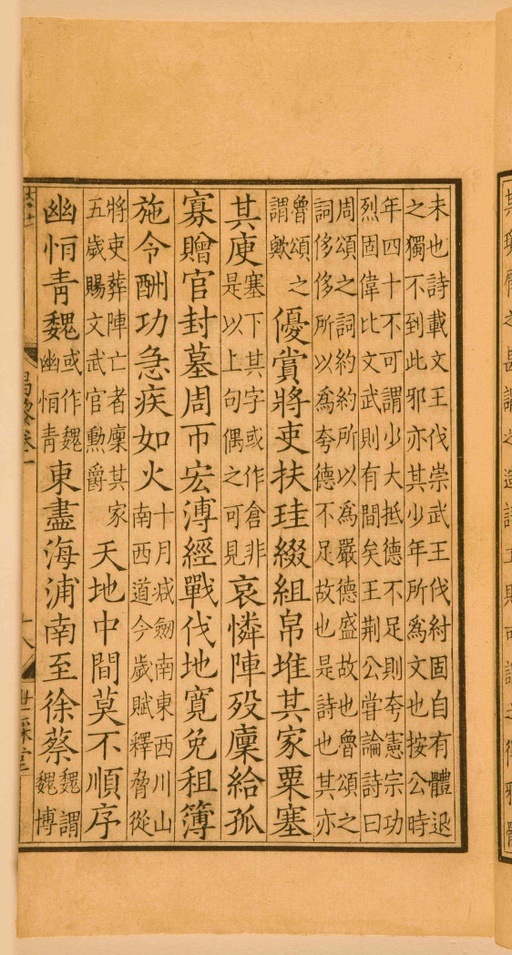 未也詩載文王伐崇武王伐紂固自有體退
之獨不到此邪亦其少年所爲文也按公時
年四十不可謂少大抵德不足則夸憲宗功
烈固偉比文武則有間矣王荊公甞論詩曰
周頌之詞約約所以爲嚴德盛故也魯頌之
詞侈侈所以爲夸德不足故也是詩也其亦
魯頌之
謂歟
優賞將吏扶珪綴組帛堆其家粟塞
其庾
塞下其字或作倉非
是以上句偶之可見
哀憐陣歿廩給孤
寡贈官封墓周帀宏溥經戰伐地寬免租簿
施令酬功急疾如火
十月减劒南東西川山
南西道今歲賦釋脅從
將吏葬陣亡者廩其家
五歲賜文武官勳爵
天地中間莫不順序
幽恒青魏
或作魏
幽恒青
東盡海浦南至徐蔡
魏謂
魏博